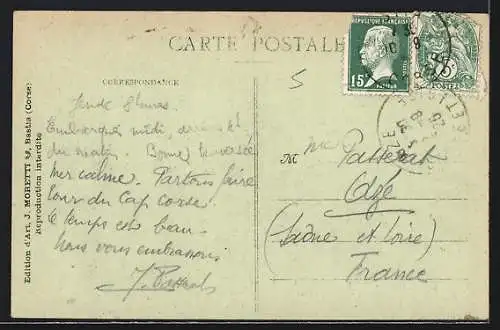 CARTE POSTALE
CORRESPONDANCE
Jeudi 8 heures
Embarqués midi, arrivés
du matin. Bonne traversée
Mer calme. Partons faire
tour du Cap Corse
le temps est beau.
Nous vous embrassons
Mr Passerat
Azé
(Saône et Loire)
France
REPUBLIQUE FRANÇAISE
15c
PASTEUR
5
POSTES
5
Edition d'Art, J. MORETTI, Bastia (Corse)
Reproduction interdite